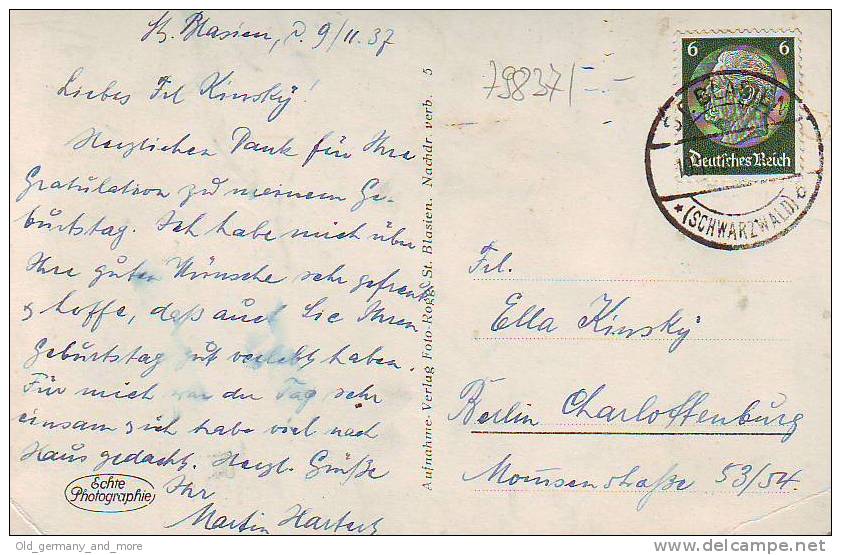 St. Blasien, d. 9/11.37
Liebes Frl Kinsky!
Herzlichen Dank für Ihre
Gratulation zu meinem Ge-
burtstag. Ich habe mich über
Ihre guten Wünsche sehr gefreut
& hoffe, daß auch Sie Ihren
Geburtstag gut verlebt haben.
Für mich war der Tag sehr
einsam & ich habe viel nach
Haus gedacht. Herzl. Grüße
Ihr
Martin
Echte
Photographie
Aufnahme-Verlag Foto-Rogg, St. Blasien. Nachdr. verb. 5
79837/
6 6
Deutsches Reich
ST. BLASIEN
(SCHWARZWALD)
Frl.
Ella Kinsky
Berlin Charlottenburg
Momsenstraße 53/54.
Old_germany_and_more
delcampe.net